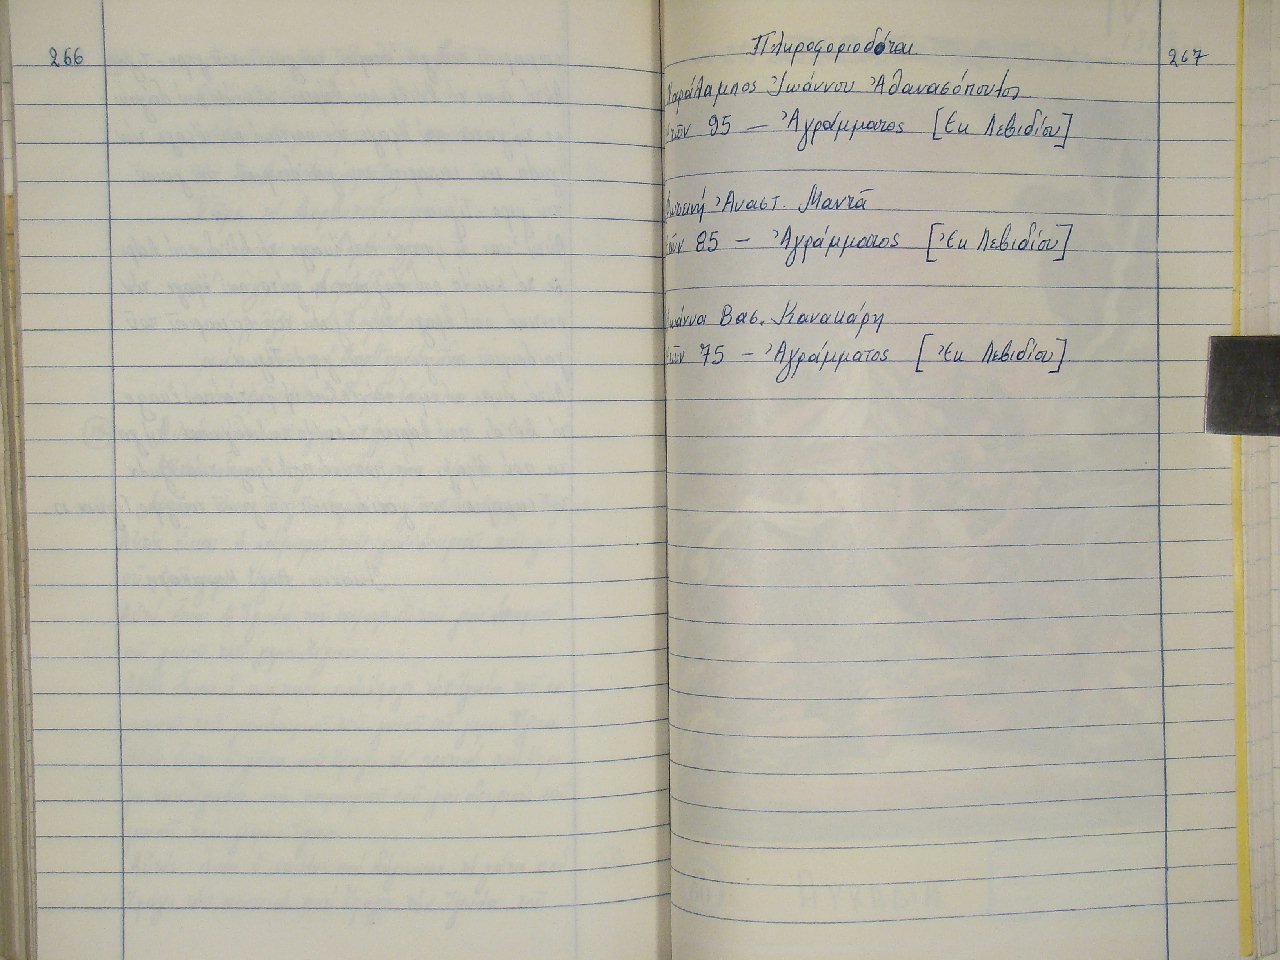 266
267
Πληροφοριοδόται
Χαράλαμπος Ἰωάννου Ἀθανασόπουλος
Ἐτῶν 95 – Ἀγράμματος [Ἐκ Λεβιδίου]
Φωτεινή Ἀναστ. Μαντᾶ
Ἐτῶν 85 – Ἀγράμματος [Ἐκ Λεβιδίου]
Ἰωάννα Βασ. Κανακάρη
Ἐτῶν 75 – Ἀγράμματος [Ἐκ Λεβιδίου]